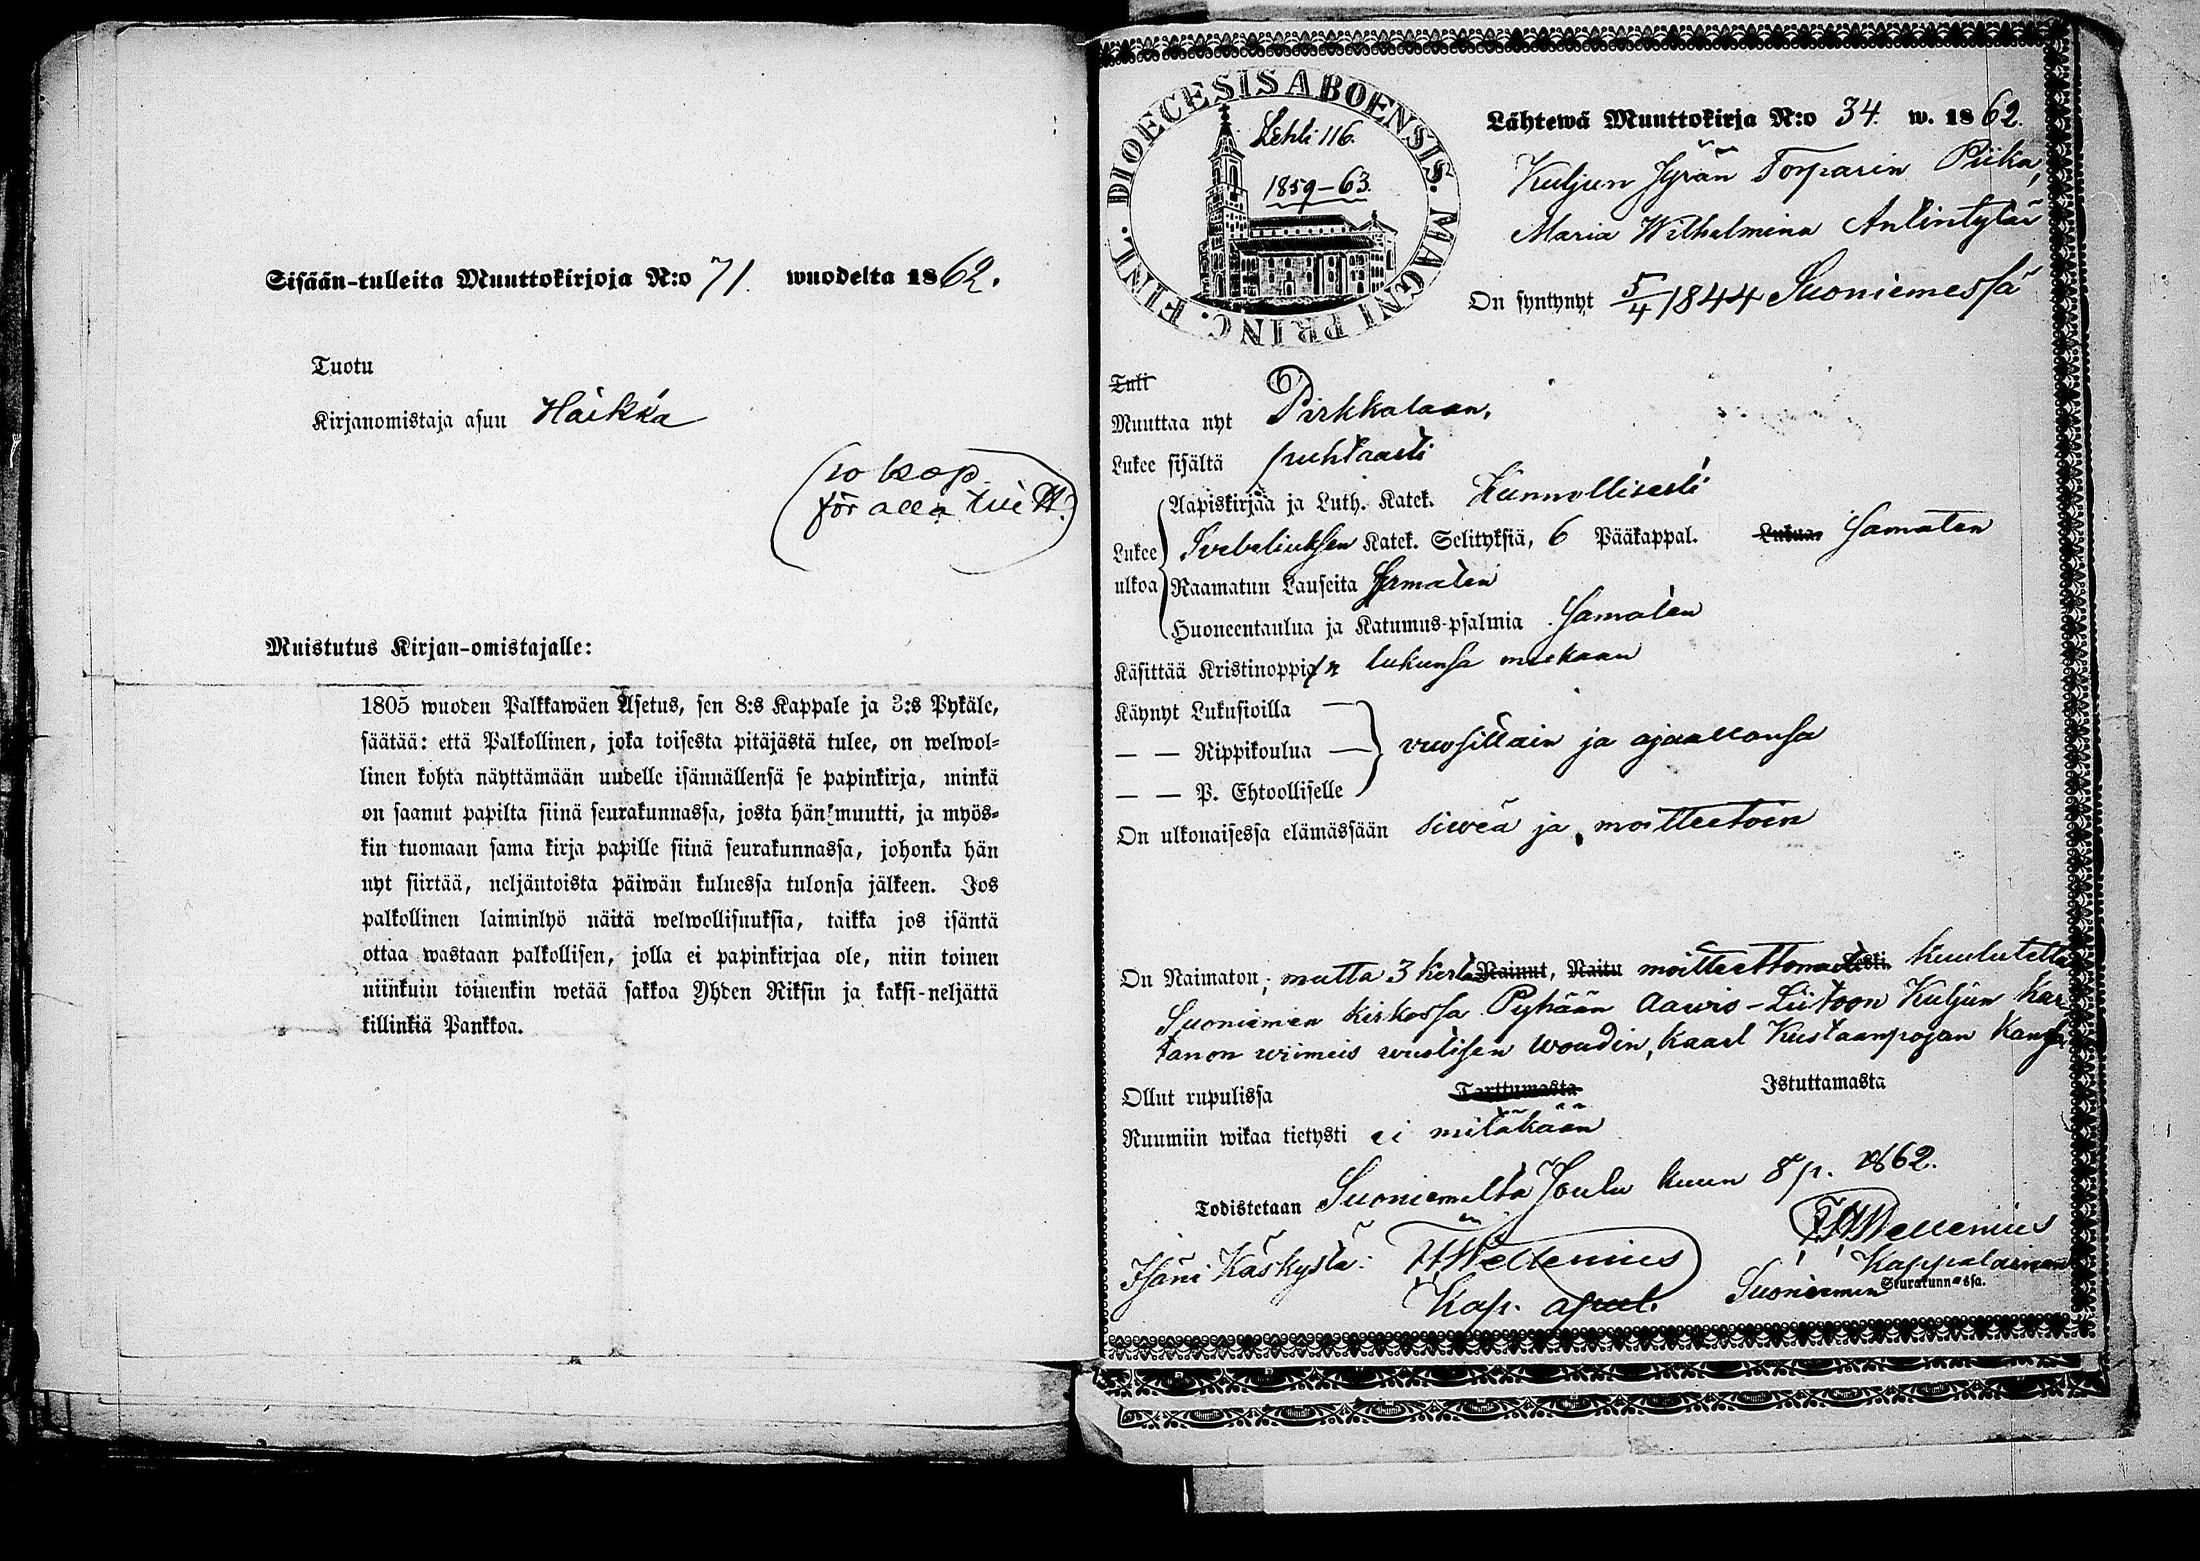 Sisään-tulleita Muuttokirjoja N:o 71. wuodelta 1862.
Tuotu
Kirjanomistaja asuu Haikka
(10 kop.
för alla
Muistutus Kirjan-omistajalle:
1805 wuoden Palkkawäen Asetus, sen 8:s Kappale ja 3:s Pykäle,
säätää: että Palkollinen, joka toisesta pitäjästä tulee, on welwol-
linen kohta näyttämään uudelle isännällensä se papinkirja, minkä
on saanut papilta siinä seurakunnassa, josta hän muutti, ja myös-
kin tuomaan sama kirja papille siinä seurakunnassa, johonka hän
nyt siirtää, neljäntoista päiwän kuluessa tulonsa jälkeen. Jos
palkollinen laiminlyö näitä welwollisuuksia, taikka jos isäntä
ottaa wastaan palkollisen, jolla ei papinkirjaa ole, niin toinen
niinkuin toinenkin wetää sakkoa Yhden Riksin ja kaksi-neljättä
killinkiä Pankkoa.
DIOECESIS ABOENSIS. MAGNI PRINC. FINL.
Lehti 116.
1859-63.
Lähtewä Muuttokirja N:o 34. w. 1862.
Kuljun Jyrän Torparin Piika,
Maria Wilhelmina Antintytär
On syntynyt 5/4 1844 Suoniemessä
Tuli
Muuttaa nyt Pirkkalaan.
Lukee sisältä puhtaasti
Aapiskirjaa ja Luth. Katek. Kunnollisesti
Lukee Svebeliuksen Katek. Selityksiä, 6 Pääkappal. Lukua Samaten
ulkoa Raamatun Lauseita Samaten
Huoneentaulua ja Katumus-psalmia Samaten
Käsittää Kristinoppin lukunsa mukaan
Käynyt Lukusioilla
— — Rippikoulua — vuosittain ja ajaallansa
— — P. Ehtoolliselle
On ulkonaisessa elämässään siweä ja moitteetoin
On Naimaton; mutta 3 kert. Nainut, Naitu moitteettomasti Leski. Kuulutettu
Suoniemen kirkossa Pyhään Aawio-Liitoon Kuljun Kar
tanon wiimeis wuotisen Woudin, Kaarl Kustaanpojan Kanssa
Ollut rupulissa Tarttumasta Istuttamasta
Ruumiin wikaa tietysti ei mitäkään
Todistetaan Suoniemeltä Joulu kuun 8 p. 1862.
Isäni Käskystä: Wellenius Wellenius
Kap. apul. Kappalainen
Suoniemen Seurakunnassa.